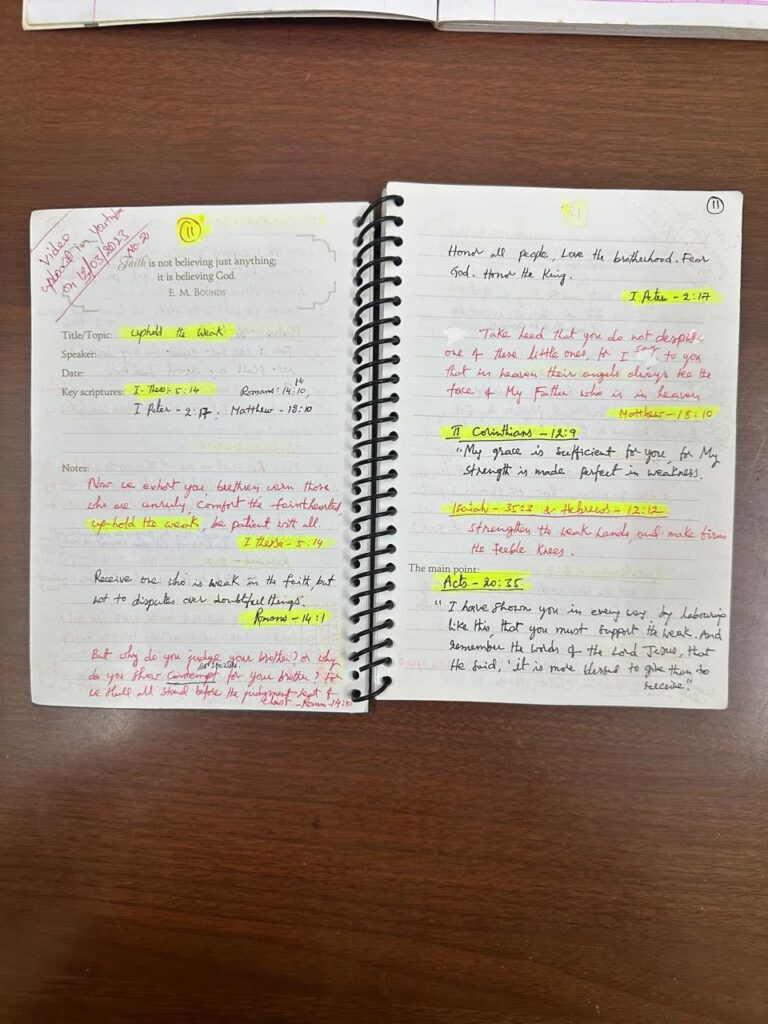 Video
upload in Youtube
on 12/03/2023
No. 20
11
Faith is not believing just anything;
it is believing God.
E. M. Bounds
Title/Topic: uphold the weak
Speaker:
Date:
Key scriptures: I-Thess-5:14 Romans: 14:10,
14
I Peter - 2:17, Matthew - 18:10
Notes:
Now we exhort you, brethren, warn those
who are unruly, comfort the fainthearted
up-hold the weak, be patient with all.
I Thess - 5:14
Receive one who is weak in the faith, but
not to disputes over doubtful things.
Romans - 14:1
But why do you judge your brother? or why
do you show contempt for your brother? For
we shall all stand before the judgment seat of
Christ. - Roman - 14:10
11
Honor all people, Love the brotherhood. Fear
God. Honor the King.
I Peter - 2:17
Take heed that you do not despise
one of these little ones, for I say to you
that in heaven their angels always see the
face of My Father who is in heaven
Matthew - 18:10
II Corinthians - 12:9
"My grace is sufficient for you, for My
Strength is made perfect in weakness.
Isaiah - 35:3 & Hebrews - 12:12
Strengthen the weak hands, and make firm
the feeble knees.
The main point:
Acts - 20:35
"I have shown you in every way, by labouring
like this, that you must support the weak. And
remember the words of the Lord Jesus, that
He said, 'it is more blessed to give than to
receive."